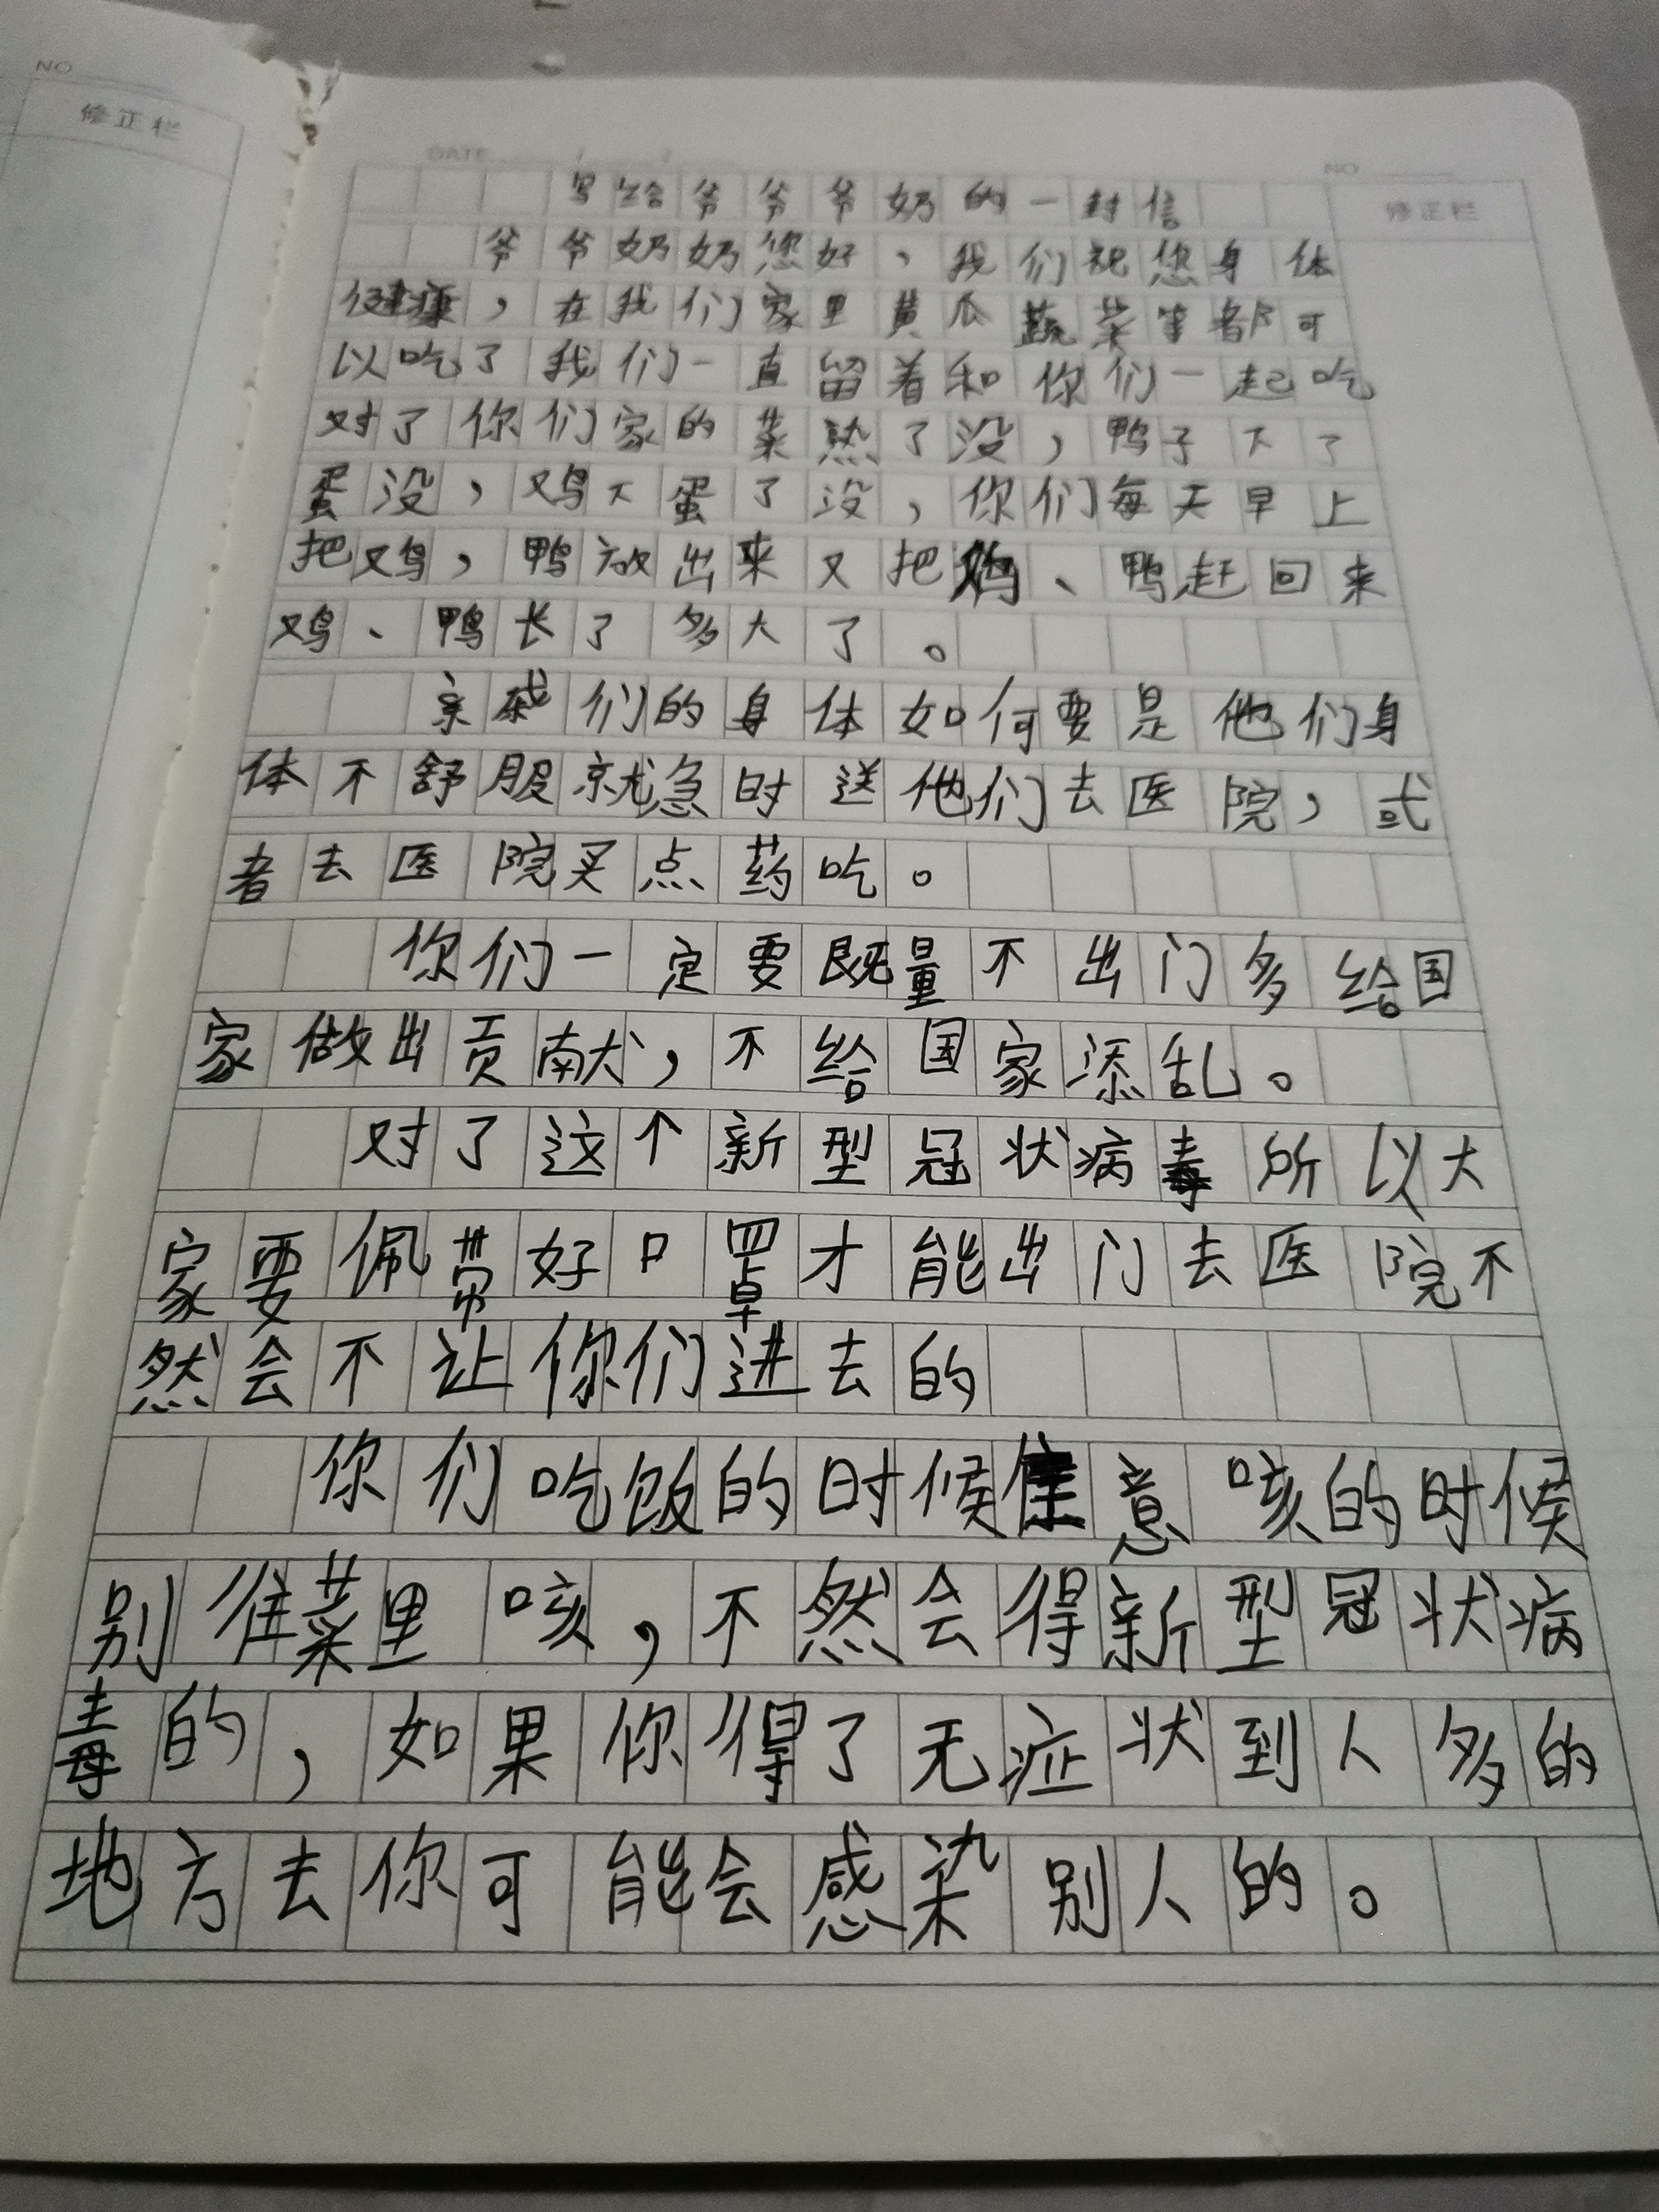 NO
修正栏
DATE / /
NO
修正栏
写给爷爷爷奶的一封信
爷爷奶奶您好,我们祝您身体
健康,在我们家里黄瓜蔬菜等都可
以吃了我们一直留着和你们一起吃
对了你们家的菜熟了没,鸭子下了
蛋没,鸡下蛋了没,你们每天早上
把鸡,鸭放出来又把鸡、鸭赶回来
鸡、鸭长了多大了。
亲戚们的身体如何要是他们身
体不舒服就急时送他们去医院,或
者去医院买点药吃。
你们一定要既量不出门多给国
家做出贡献,不给国家添乱。
对了这个新型冠状病毒所以大
家要佩带好口罩才能出门去医院不
然会不让你们进去的
你们吃饭的时候意咳的时候
别往菜里咳,不然会得新型冠状病
毒的,如果你得了无症状到人多的
地方去你可能会感染别人的。